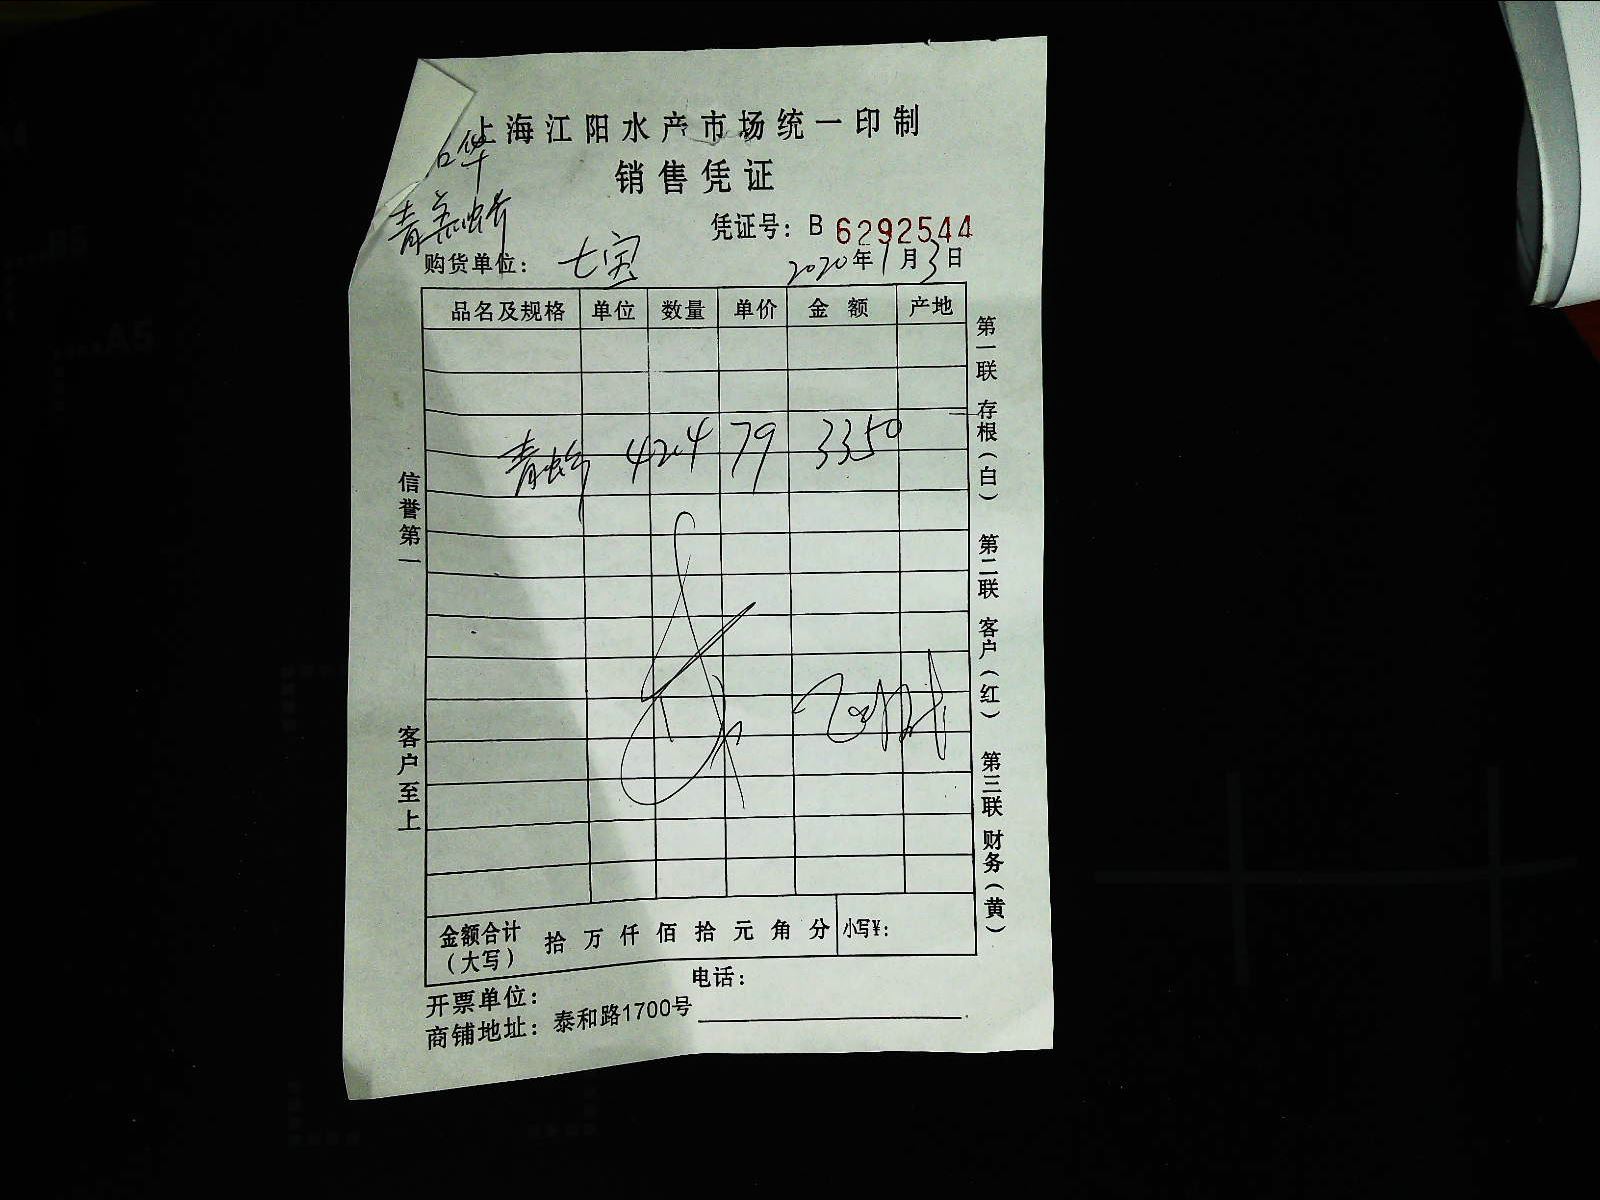 上海江阳水产市场统一印制
销售凭证
凭证号：B 6292544
购货单位：七宝 2020年1月3日
品名及规格 单位 数量 单价 金额 产地
青蟹 42.4 79 3350
金额合计（大写） 拾 万 仟 佰 拾 元 角 分 小写¥：
开票单位： 电话：
商铺地址：泰和路1700号
信誉第一
客户至上
第一联 存根（白） 第二联 客户（红） 第三联 财务（黄）